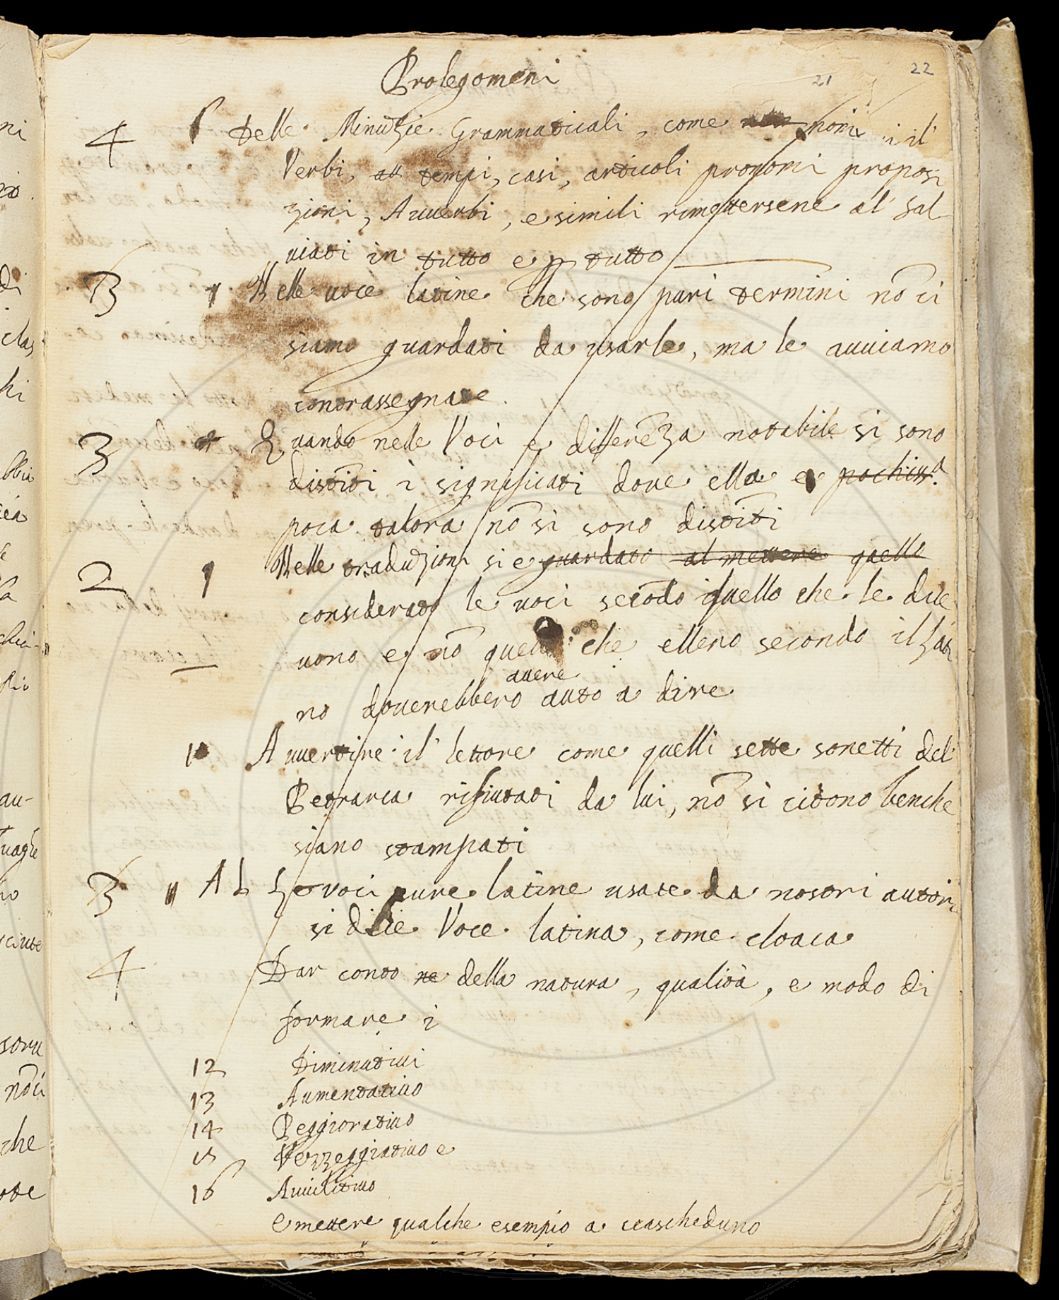 Prolegomeni
21 22
4 Delle Minutzie Grammaticali, come nomi, il
Verbi, tempi, casi, articoli pronomi proposi
zioni, Auuerbi, e simili rimettersene al Sal
uiati in tutto e p tutto
3 Nelle uoce latine che sono puri termini nō ci
siamo guardati da usarle, ma le auuiamo
contrassegnate.
3 Quando nelle Voci e differēza notabile si sono
distīti i significati doue ella e pochiss.a
poca talora nō si sono distīti
2 Nelle traduzioni si e guardato al mettere quello
considerato le uoci secōdo quello che le dice
uono e nō quello che elleno secondo il lati
auere
no douerebbero auto a dire
Auuertire il lettore come quelli sette sonetti del
Petrarca rifiutati da lui, nō si citono benche
siano stampati
3 Le uoci pure latine usate da nostri autori
si dicie Voce latina, come cloaca
4 Dar conto ne della natura, qualità, e modo di
formare i
12 Diminutiui
13 Aumentatiuo
14 Peggioratiuo
15 Vezzeggiatiuo e
16 Auuilitiuo
e mettere qualche esempio a ciascheduno